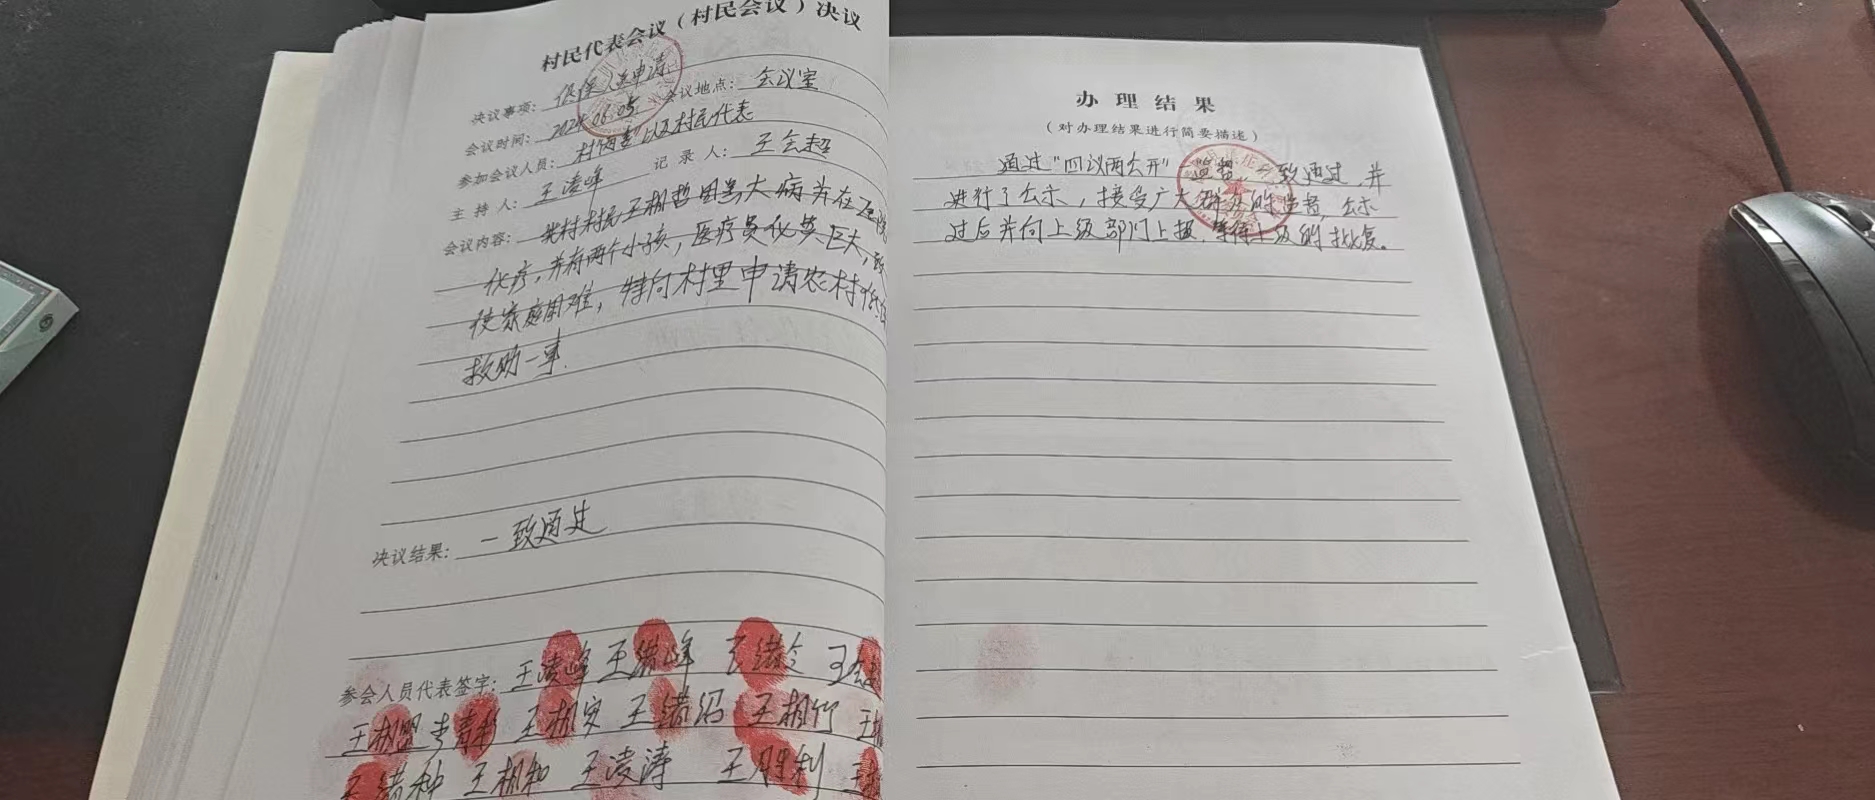 村民代表会议（村民会议）决议
决议事项：低保人员申请
会议时间：2024.06.05 会议地点：会议室
参加会议人员：村"两委"以及村民代表
主持人：王凌峰 记录人：王会超
会议内容：我村村民王相哲因患大病并在医院
化疗，并有两个小孩，医疗费化费巨大，致
使家庭困难，特向村里申请农村低保
救助一事.
决议结果：一致通过
参会人员代表签字：王凌峰 王绪峰
王相盟 王相安 王绪绍 王相竹
王绪种 王相和 王凌涛 王胜利
办理结果
（对办理结果进行简要描述）
通过"四议两公开"一监督，一致通过，并
进行了公示，接受广大群众的监督，公示
过后并向上级部门上报，等待上级的批复。